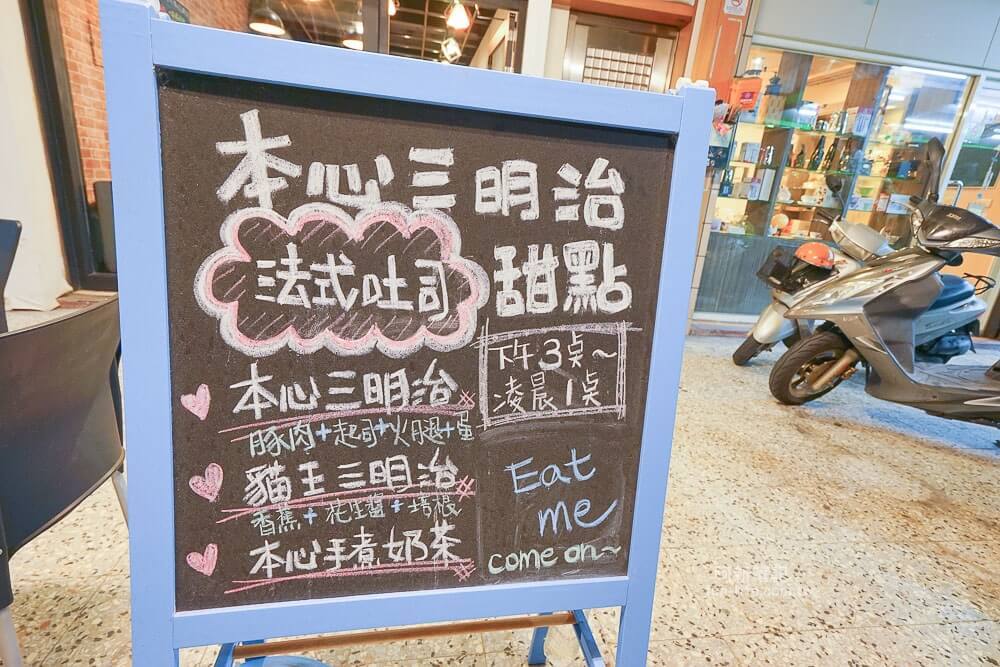 本心三明治
法式吐司
甜點
下午3桌~
凌晨1桌
本心三明治
豚肉+起司+火腿+蛋
貓王三明治
香蕉+花生醬+培根
本心手煮奶茶
Eat
me
come on~